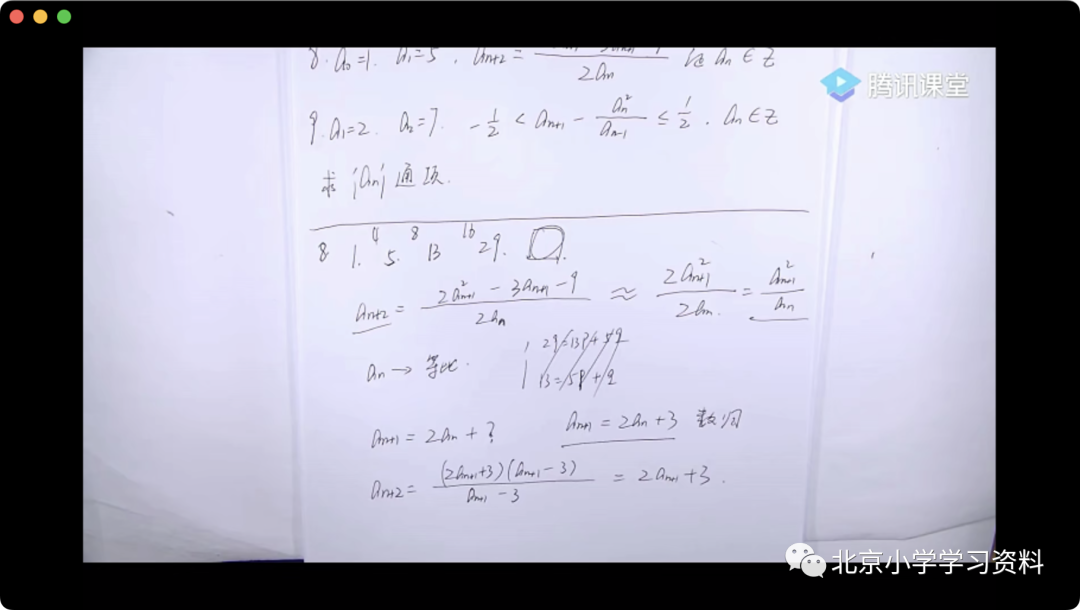 8. a₀=1. a₁=5 , aₙ₊₂ = / 2aₙ 证 aₙ ∈ Z
腾讯课堂
9. a₁=2. a₂=7. -1/2 < aₙ₊₁ - aₙ²/aₙ₋₁ ≤ 1/2 . aₙ∈Z
求 {aₙ} 通项.
8 1. 5. 13 29.
4 8 16
aₙ₊₂ = (2aₙ₊₁² - 3aₙ₊₁ - 9)/2aₙ ≈ 2aₙ₊₁²/2aₙ. = aₙ₊₁²/aₙ
aₙ → 等比.
29=13p+5q
13=5p+q
aₙ₊₁ = 2aₙ + ? aₙ₊₁ = 2aₙ+3 数归
aₙ₊₂ = (2aₙ₊₁+3)(aₙ₊₁-3)/(aₙ₊₁-3) = 2aₙ₊₁+3.
北京小学学习资料